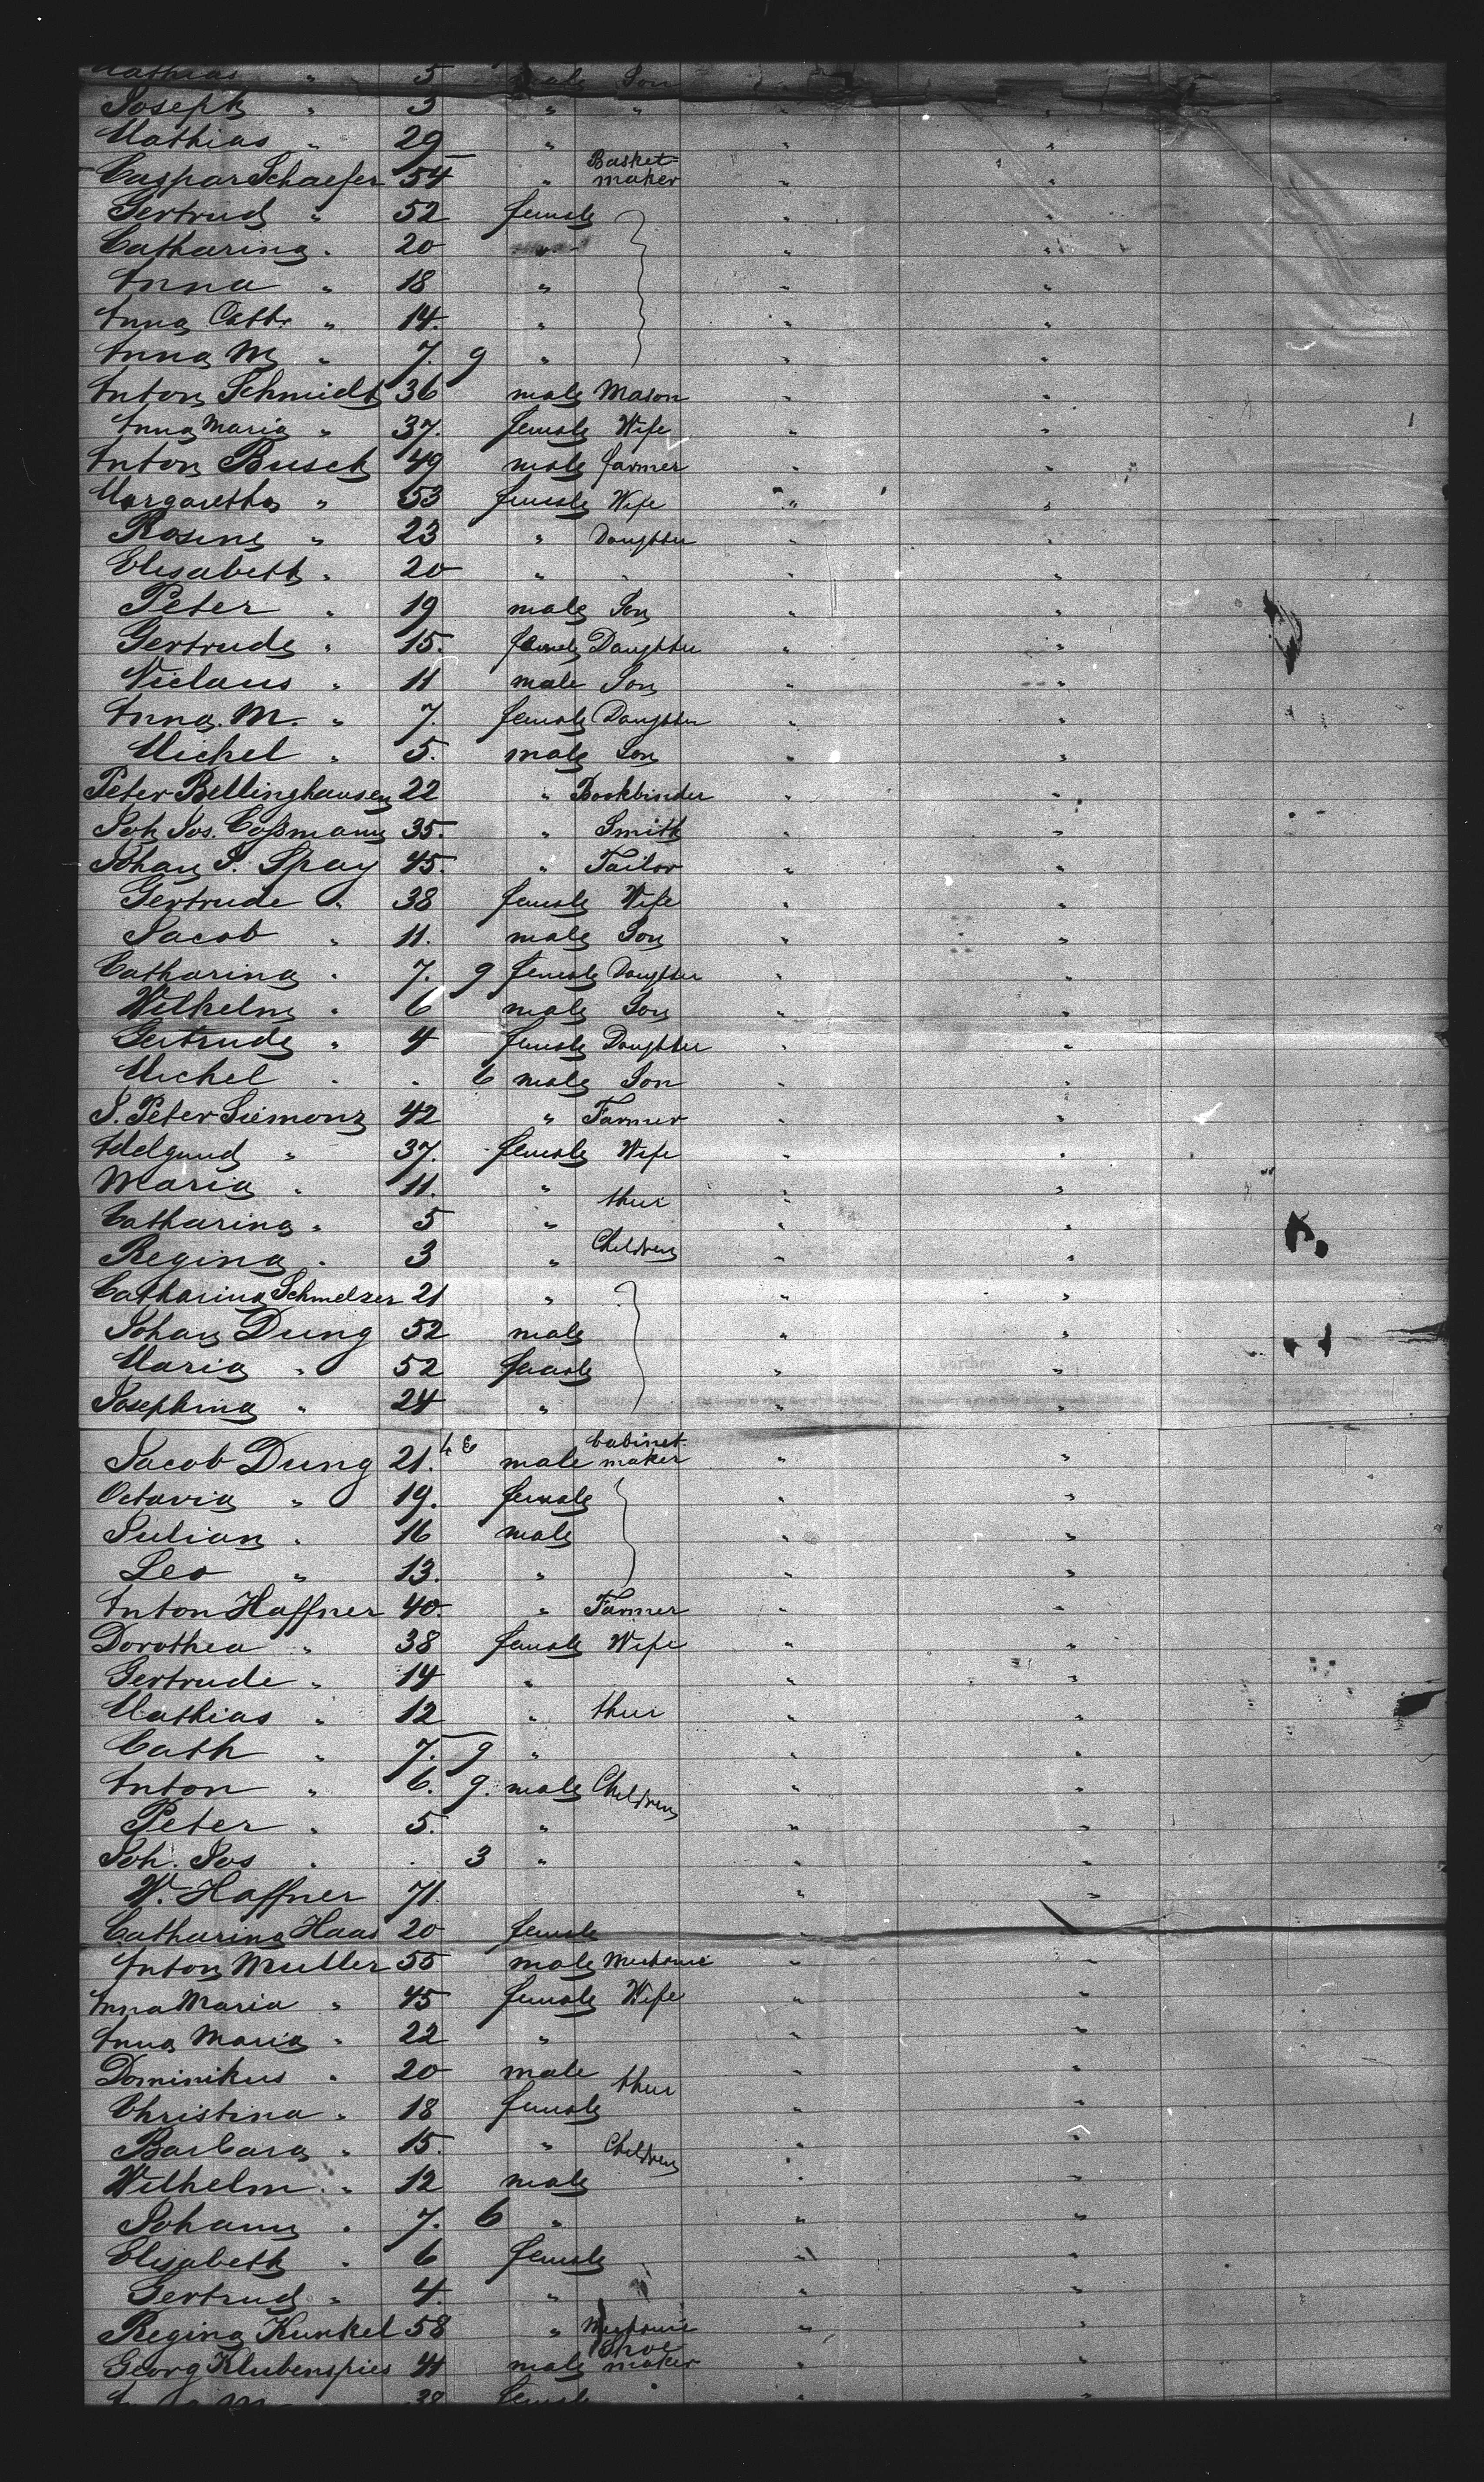 Mathias " 5 male Son
Joseph " 3 " " " "
Mathias " 29 " " "
Caspar Schaefer 54 " Basket= maker " "
Gertrud " 52 female " "
Catharina " 20 " " "
Anna " 18 " " "
Anna Cath. " 14. " " "
Anna M " 7. 9 " " "
Anton Schmidt 36 male Mason " "
Anna Maria " 37. female Wife " "
Anton Busch 49 male farmer " "
Margaretha " 53 female Wife " "
Rosina " 23 " Daughter " "
Elisabeth " 20 " " " "
Peter " 19 male Son " "
Gertrude " 15. female Daughter " "
Niclaus " 11 male Son " "
Anna. M. " 7. female Daughter " "
Michel " 5. male Son " "
Peter Bellinghausen 22 " Bookbinder " "
Joh Jos. Coßmann 35. " Smith " "
Johan J. Spay 45. " Tailor " "
Gertrude " 38 female Wife " "
Jacob " 11. male Son " "
Catharina " 7. 9 female Daughter " "
Wilhelm " 6 male Son " "
Gertrude " 4 female Daughter " "
Michel " . 6 male Son " "
J. Peter Siemonz 42 " Farmer " "
Adelgund " 37. female Wife " "
Maria " 11. " thier " "
Catharina " 5 " " "
Regina " 3 " Children " "
Catharina Schmelzer 21 " " "
Johan Dung 52 male " "
Maria " 52 female " "
Josephina " 24 " " "
Jacob Dung 21. male Cabinet- maker " "
Octavia " 19. female " "
Julian " 16 male " "
Leo " 13. " " "
Anton Haffner 40. " Farmer " "
Dorothea " 38 female Wife " "
Gertrude " 14 " " "
Mathias " 12 " thier " "
Cath " 7. 9 " " "
Anton " 6. 9. male Children " "
Peter " 5. " " "
Joh. Jos " . 3 " " "
W. Haffner 71. " "
Catharina Haas 20 female
Anton Muller 55 male Mechanic " "
Anna Maria " 45 female Wife " "
Anna Maria " 22 " " "
Dominikus " 20 male thier " "
Christina " 18 female " "
Barbara " 15. " Children " "
Wilhelm " 12 male " "
Johann " 7. 6 " " "
Elisabeth " 6 female " "
Gertrud " 4. " " "
Regina Kunkel 58 " Mechanic " "
Georg Klubenspies 41 male Shoe maker " "
38 female " "